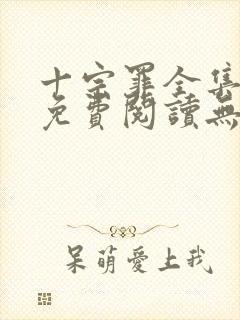 十宗罪全集
免費閱讀無
呆萌愛上我